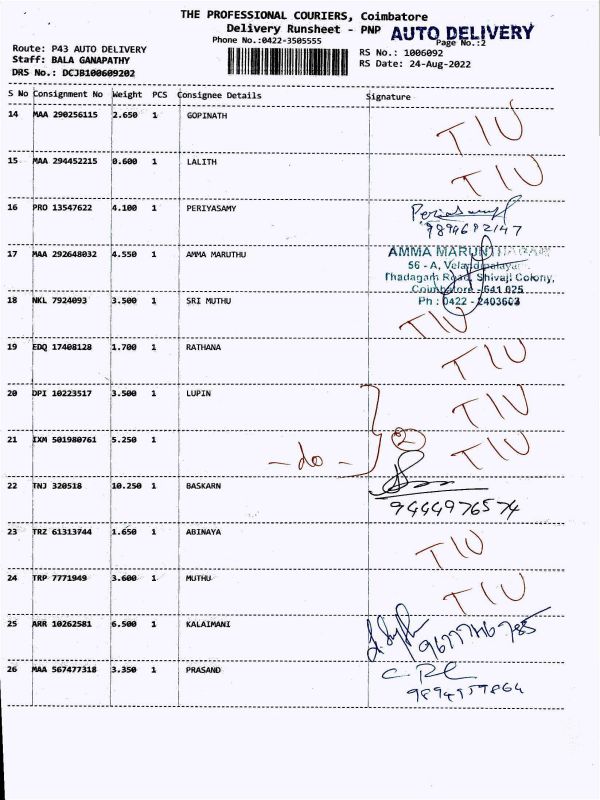 THE PROFESSIONAL COURIERS, Coimbatore
Delivery Runsheet - PNP AUTO DELIVERY
Phone No.:0422-3505555 Page No.:2
Route: P43 AUTO DELIVERY
Staff: BALA GANAPATHY
DRS No.: DCJB100609202
RS No.: 1006092
RS Date: 24-Aug-2022
S No Consignment No Weight PCS Consignee Details Signature
14 MAA 290256115 2.650 1 GOPINATH TIU
15 MAA 294452215 0.600 1 LALITH TIU
16 PRO 13547622 4.100 1 PERIYASAMY Periasamy
9894682147
17 MAA 292648032 4.550 1 AMMA MARUTHU AMMA
56 - A,
Thadagam Road, Shivaji Colony,
Coimbatore - 641 025
Ph : 0422 - 2403603
18 NKL 7924093 3.500 1 SRI MUTHU TIU
19 EDQ 17408128 1.700 1 RATHANA TIU
20 DPI 10223517 3.500 1 LUPIN TIU
21 IXM 501980761 5.250 1 - do - 2 TIU
22 TNJ 320518 10.250 1 BASKARN
9444976574
23 TRZ 61313744 1.650 1 ABINAYA TIU
24 TRP 7771949 3.600 1 MUTHU TIU
25 ARR 10262581 6.500 1 KALAIMANI
26 MAA 567477318 3.350 1 PRASAND
9894959864